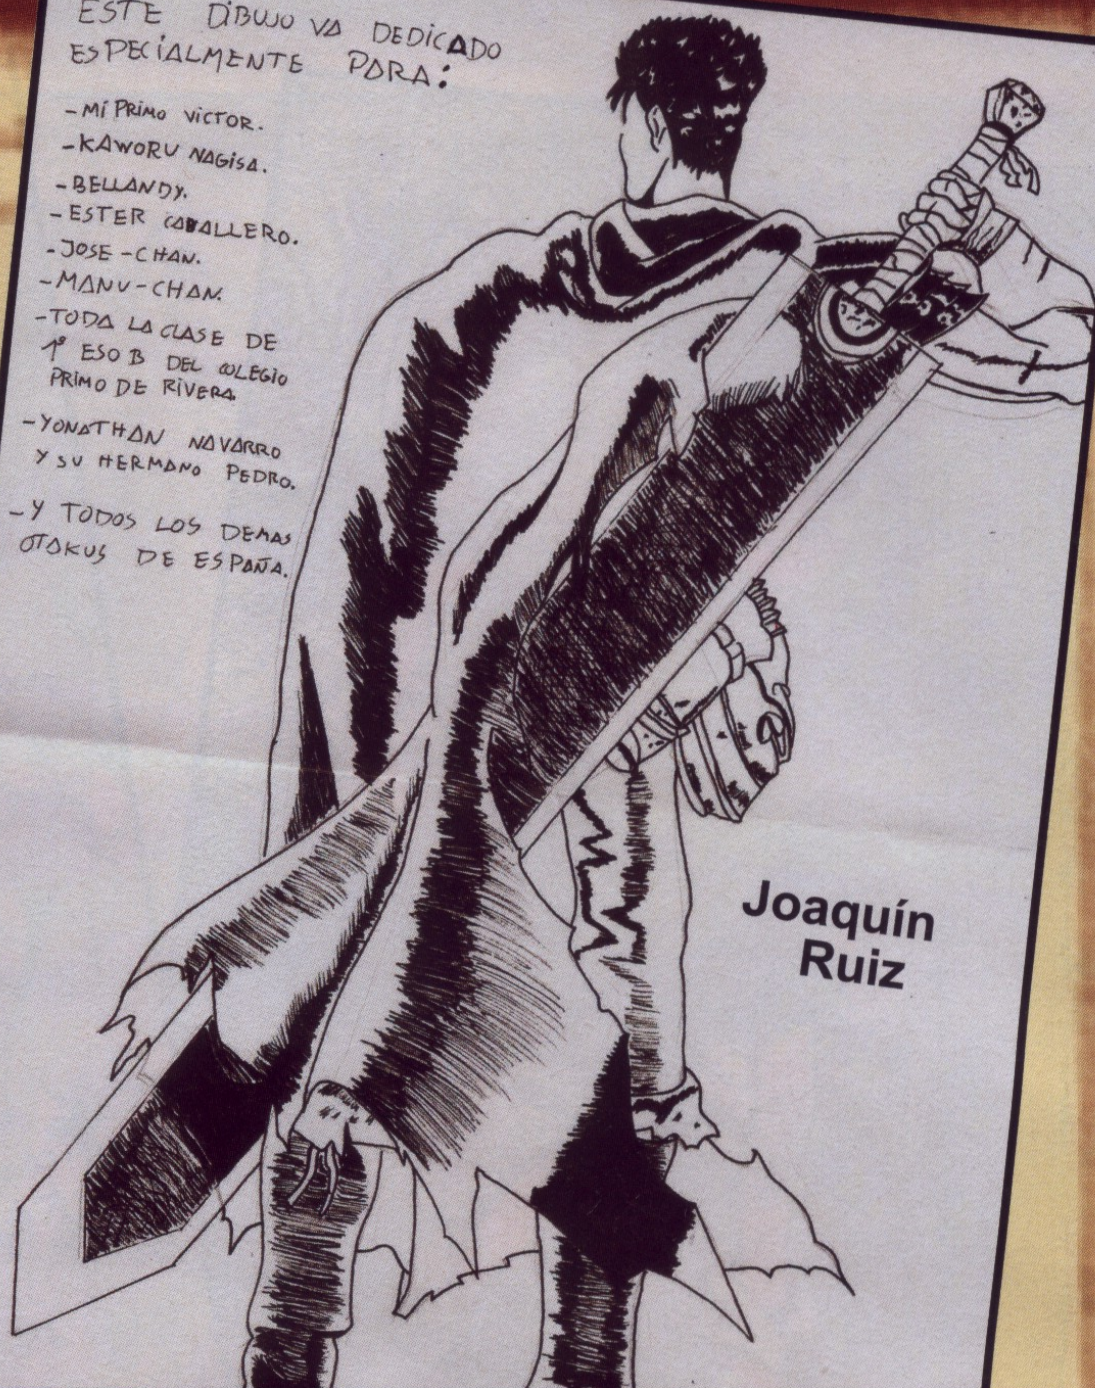 ESTE DIBUJO VA DEDICADO
ESPECIALMENTE PARA:
- MI PRIMO VICTOR.
- KAWORU NAGISA.
- BELLANDY.
- ESTER CABALLERO.
- JOSE-CHAN.
- MANU-CHAN.
- TODA LA CLASE DE
1º ESO B DEL COLEGIO
PRIMO DE RIVERA
- YONATHAN NAVARRO
Y SU HERMANO PEDRO.
- Y TODOS LOS DEMAS
OTAKUS DE ESPAÑA.
Joaquín
Ruiz